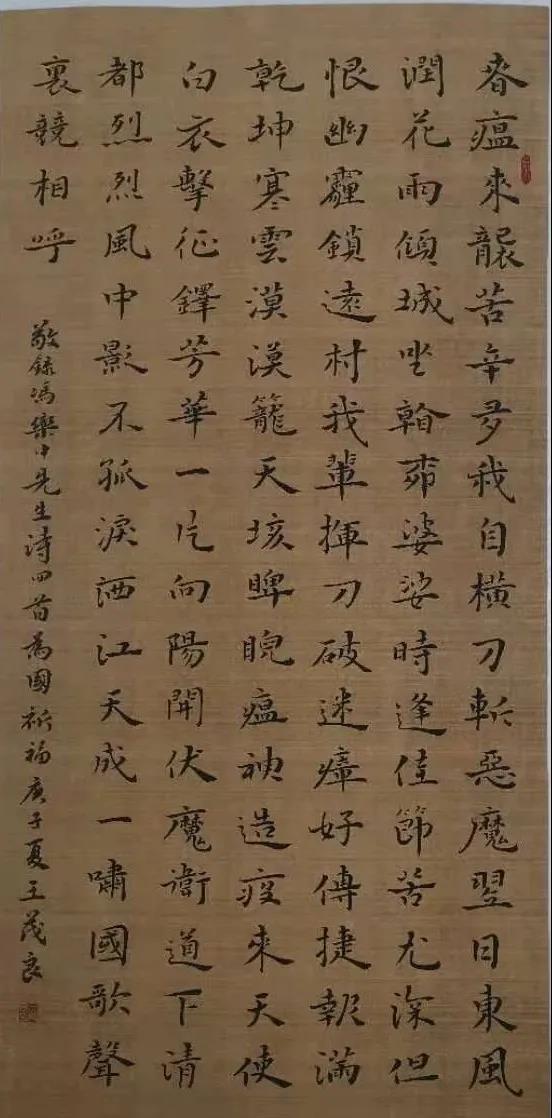 春瘟來襲苦辛多我自橫刀斬惡魔翌日東風
潤花雨傾城婆娑時逢佳節苦尤深但
恨幽霾鎖遠村我輩揮刀破迷瘴好傳捷報滿
乾坤寒雲漠漠籠天垓睥睨瘟神造疫來天使
白衣擊征鐸芳華一片向陽開伏魔衛道下清
都烈烈風中影不孤淚洒江天成一嘯國歌聲
裏競相呼
敬錄馮樂中先生詩四首為國祈福庚子夏王茂良